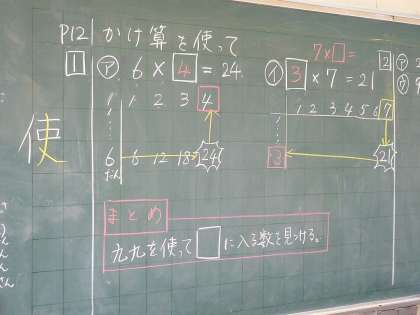 P12 かけ算を使って
1 ㋐ 6 × 4 = 24
1 1 2 3 4
6 6 12 18 24
だん
7×□=
㋑ 3 × 7 = 21
1 2 3 4 5 6 7
3 21
2 ㋐ 2
㋒ 9
使
まとめ
九九を使って□に入る数を見つける。